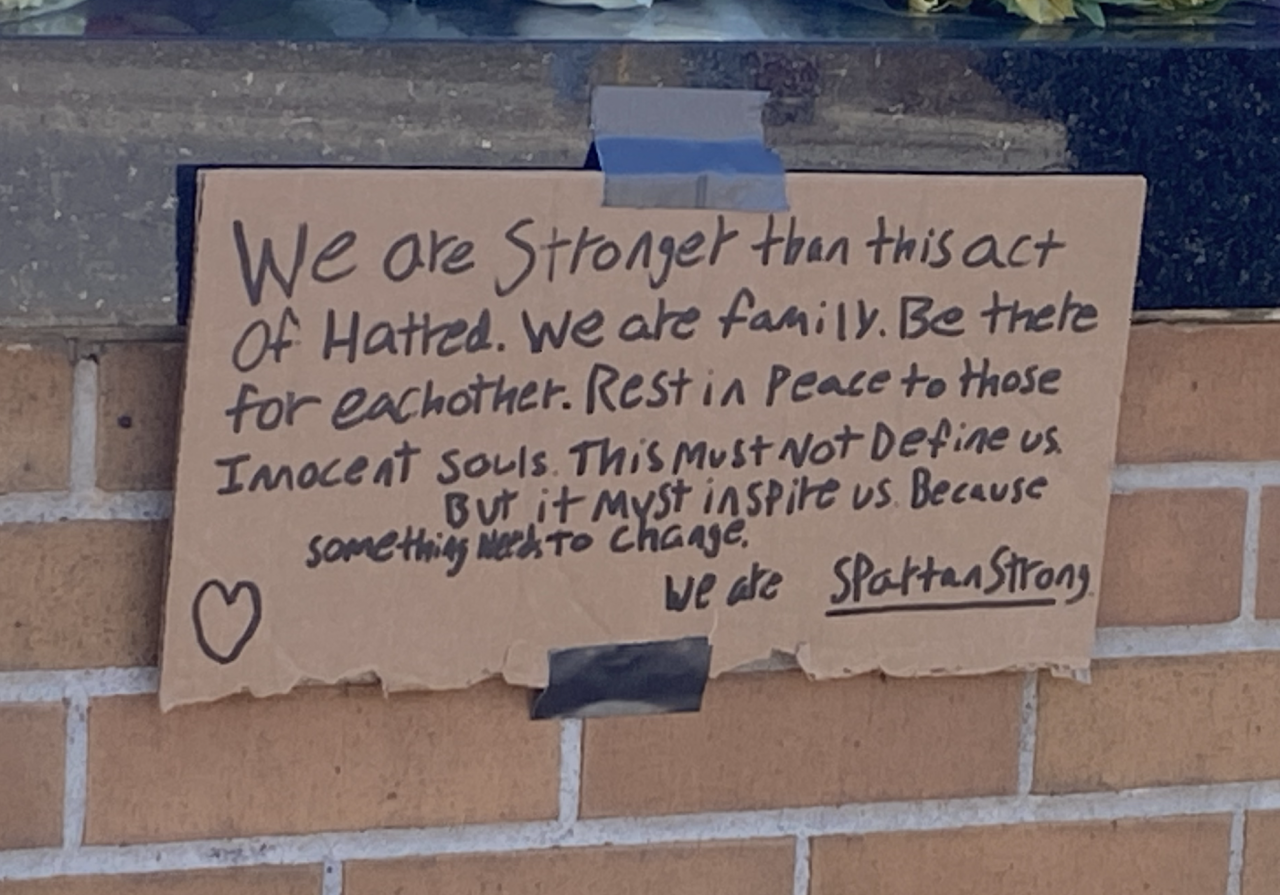 We are Stronger than this act
Of Hatred. We are family. Be there
for eachother. Rest in Peace to those
Innocent souls. This Must Not Define us.
But it Must inspire us. Because
something Needs to change.
We are SpartanStrong.